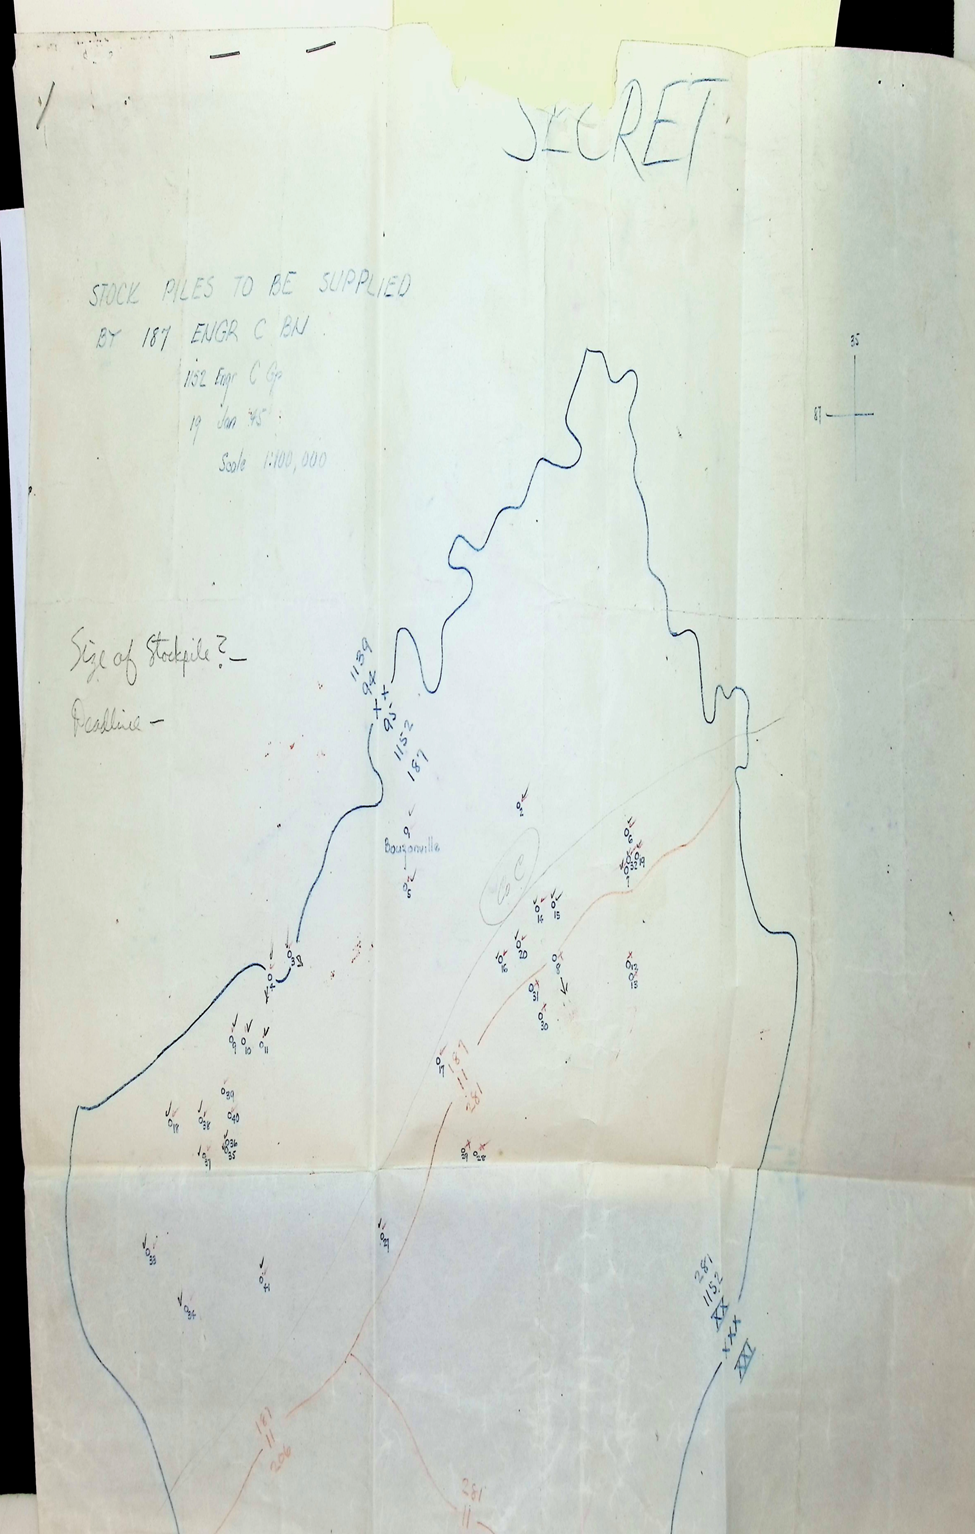 SECRET
STOCK PILES TO BE SUPPLIED
BY 187 ENGR C BN
1152 Engr C Gp
19 Jan 45
Scale 1:100,000
35
87
Size of Stockpile? —
Deadline —
1159
94
XX
95
1152
187
2
Bouzonville
5
6
32 19
7
Co C
14
15
20
16
8
12
13
31
30
3
4
9
10
11
17
187
11
281
39
18
38
40
36
35
37
28
27
33
34
41
281
1152
XX
XXX
XXI
187
11
206
281
11